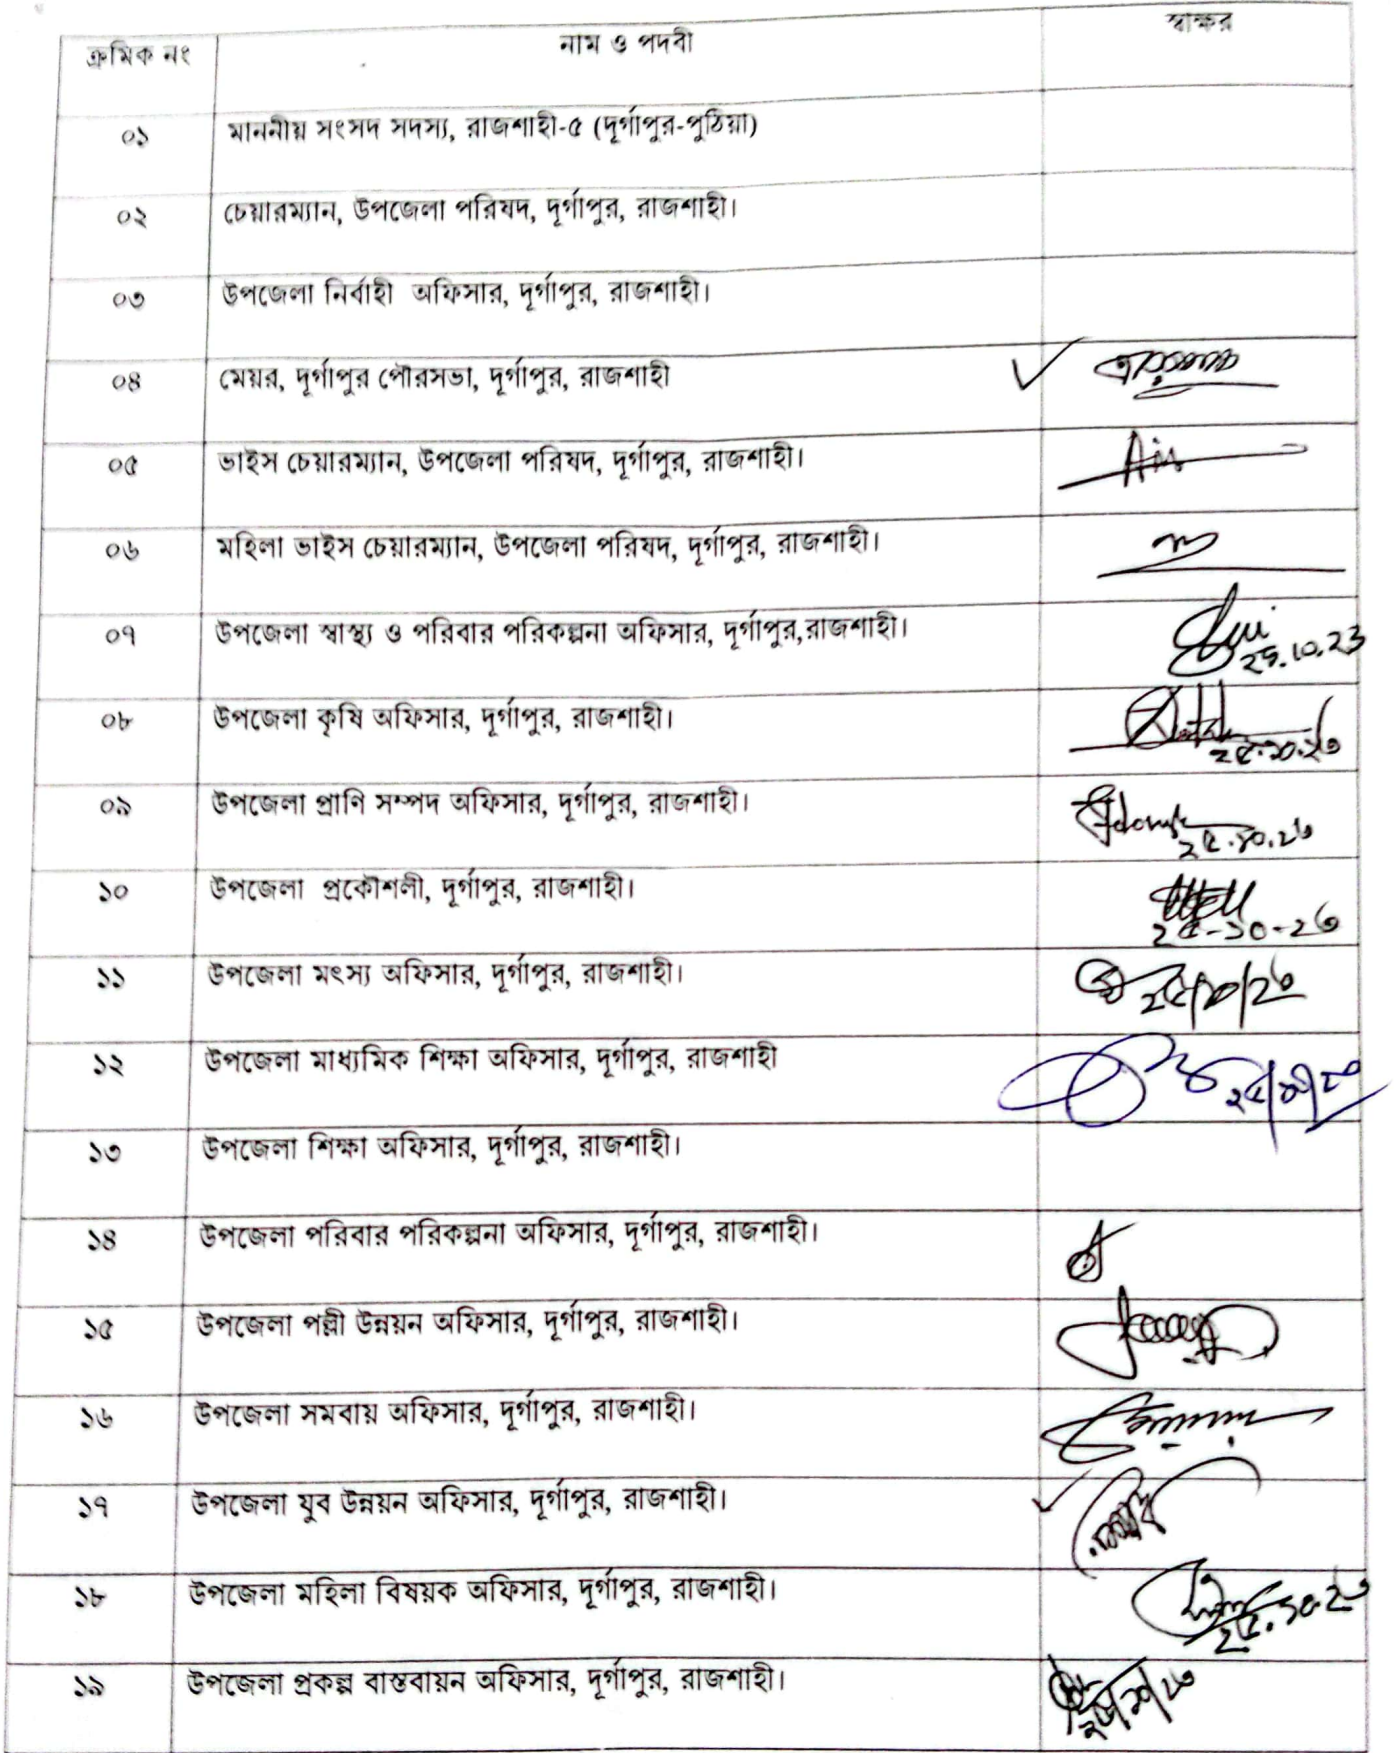 ক্রমিক নং	নাম ও পদবী	স্বাক্ষর
০১	মাননীয় সংসদ সদস্য, রাজশাহী-৫ (দূর্গাপুর-পুঠিয়া)
০২	চেয়ারম্যান, উপজেলা পরিষদ, দূর্গাপুর, রাজশাহী।
০৩	উপজেলা নির্বাহী অফিসার, দূর্গাপুর, রাজশাহী।
০৪	মেয়র, দূর্গাপুর পৌরসভা, দূর্গাপুর, রাজশাহী
০৫	ভাইস চেয়ারম্যান, উপজেলা পরিষদ, দূর্গাপুর, রাজশাহী।
০৬	মহিলা ভাইস চেয়ারম্যান, উপজেলা পরিষদ, দূর্গাপুর, রাজশাহী।
০৭	উপজেলা স্বাস্থ্য ও পরিবার পরিকল্পনা অফিসার, দূর্গাপুর,রাজশাহী।	25.10.23
০৮	উপজেলা কৃষি অফিসার, দূর্গাপুর, রাজশাহী।	২৫.১০.২৩
০৯	উপজেলা প্রাণি সম্পদ অফিসার, দূর্গাপুর, রাজশাহী।	২৫.১০.২৩
১০	উপজেলা প্রকৌশলী, দূর্গাপুর, রাজশাহী।	২৫-১০-২৩
১১	উপজেলা মৎস্য অফিসার, দূর্গাপুর, রাজশাহী।	২৫/১০/২৩
১২	উপজেলা মাধ্যমিক শিক্ষা অফিসার, দূর্গাপুর, রাজশাহী	২৫/১০/২৩
১৩	উপজেলা শিক্ষা অফিসার, দূর্গাপুর, রাজশাহী।
১৪	উপজেলা পরিবার পরিকল্পনা অফিসার, দূর্গাপুর, রাজশাহী।
১৫	উপজেলা পল্লী উন্নয়ন অফিসার, দূর্গাপুর, রাজশাহী।
১৬	উপজেলা সমবায় অফিসার, দূর্গাপুর, রাজশাহী।
১৭	উপজেলা যুব উন্নয়ন অফিসার, দূর্গাপুর, রাজশাহী।
১৮	উপজেলা মহিলা বিষয়ক অফিসার, দূর্গাপুর, রাজশাহী।	২৫.১০.২৩
১৯	উপজেলা প্রকল্প বাস্তবায়ন অফিসার, দূর্গাপুর, রাজশাহী।	২৫/১০/২৩